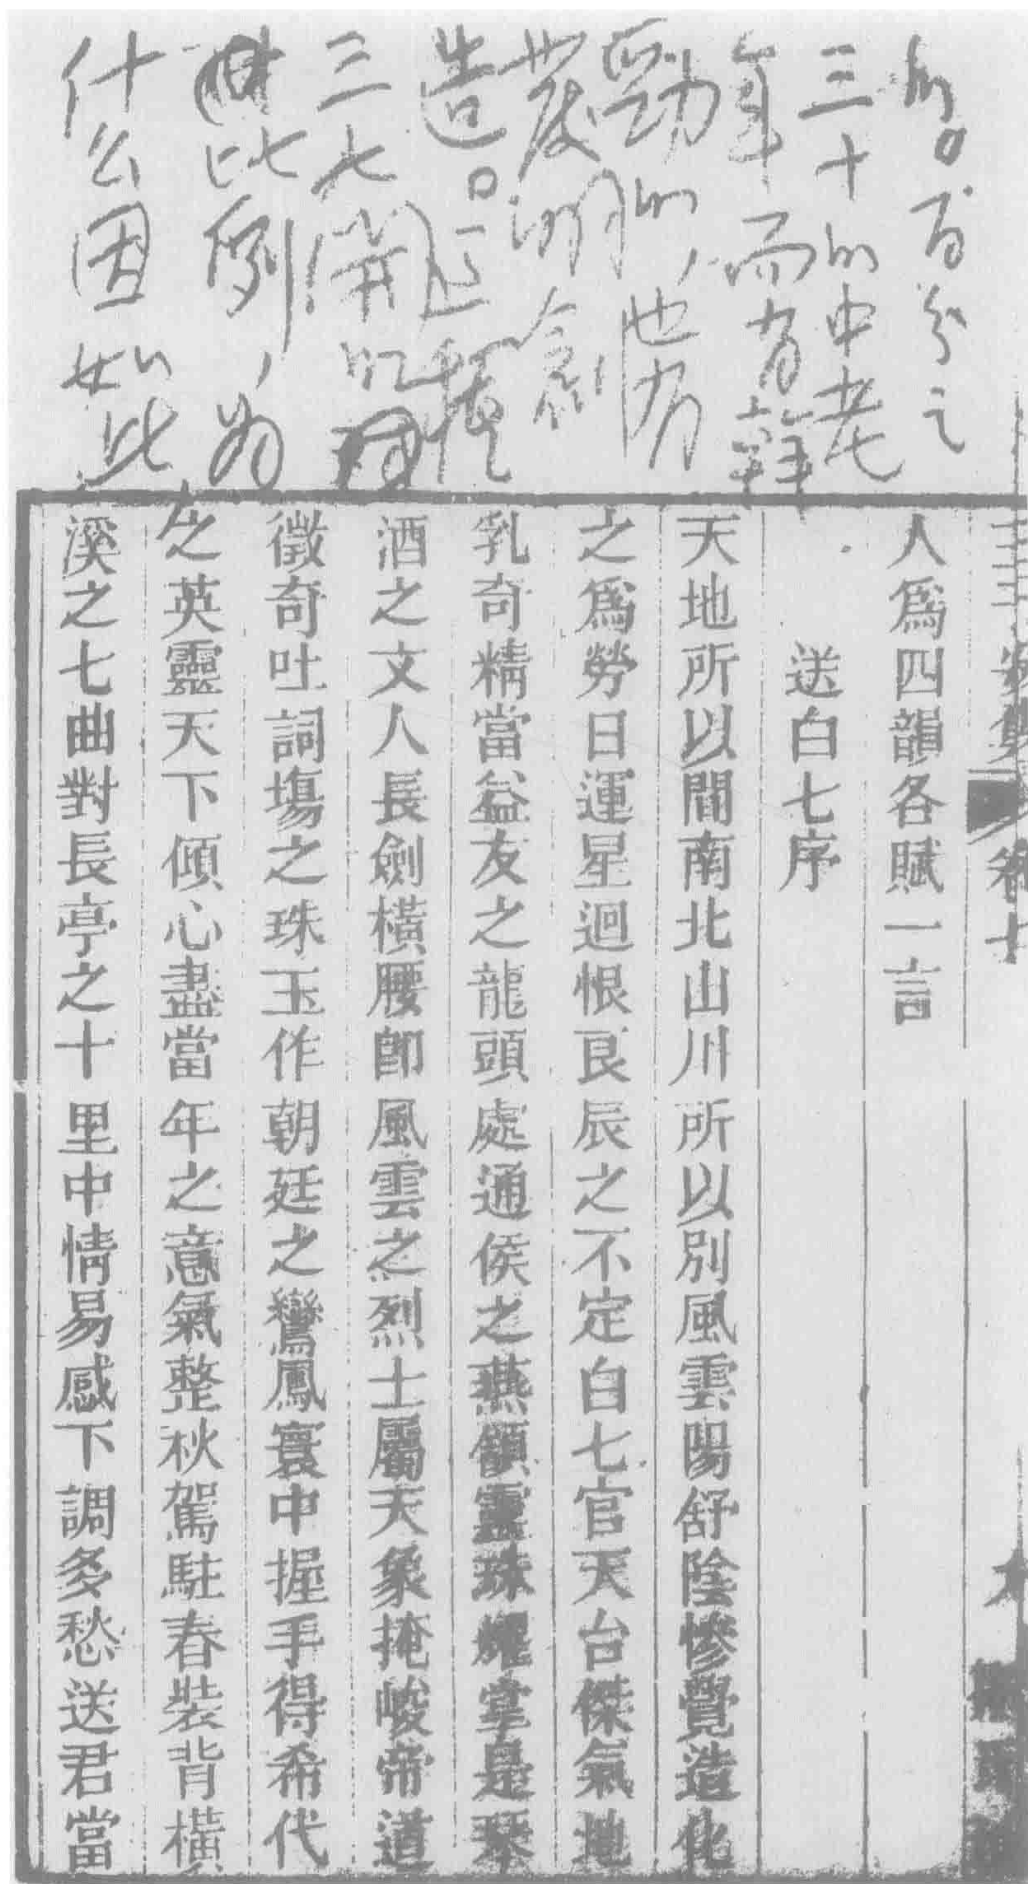 的。百分之
三十的中老
年而有幹
勁的，也有
發明創
造。
三七開的
比例，為
什么因如此
人為四韻各賦一言
送白七序
天地所以間南北山川所以別風雲陽舒陰慘覺造化
之為勞日運星迴恨良辰之不定白七官天台傑氣地
乳奇精當益友之龍頭處通侯之燕頷靈珠耀掌是琴
酒之文人長劍橫腰卽風雲之烈士屬天象掩峻帝道
徵奇吐詞塲之珠玉作朝廷之鸞鳳寰中握手得希代
之英靈天下傾心盡當年之意氣整秋駕駐春裝背橫
溪之七曲對長亭之十里中情易感下調多愁送君當